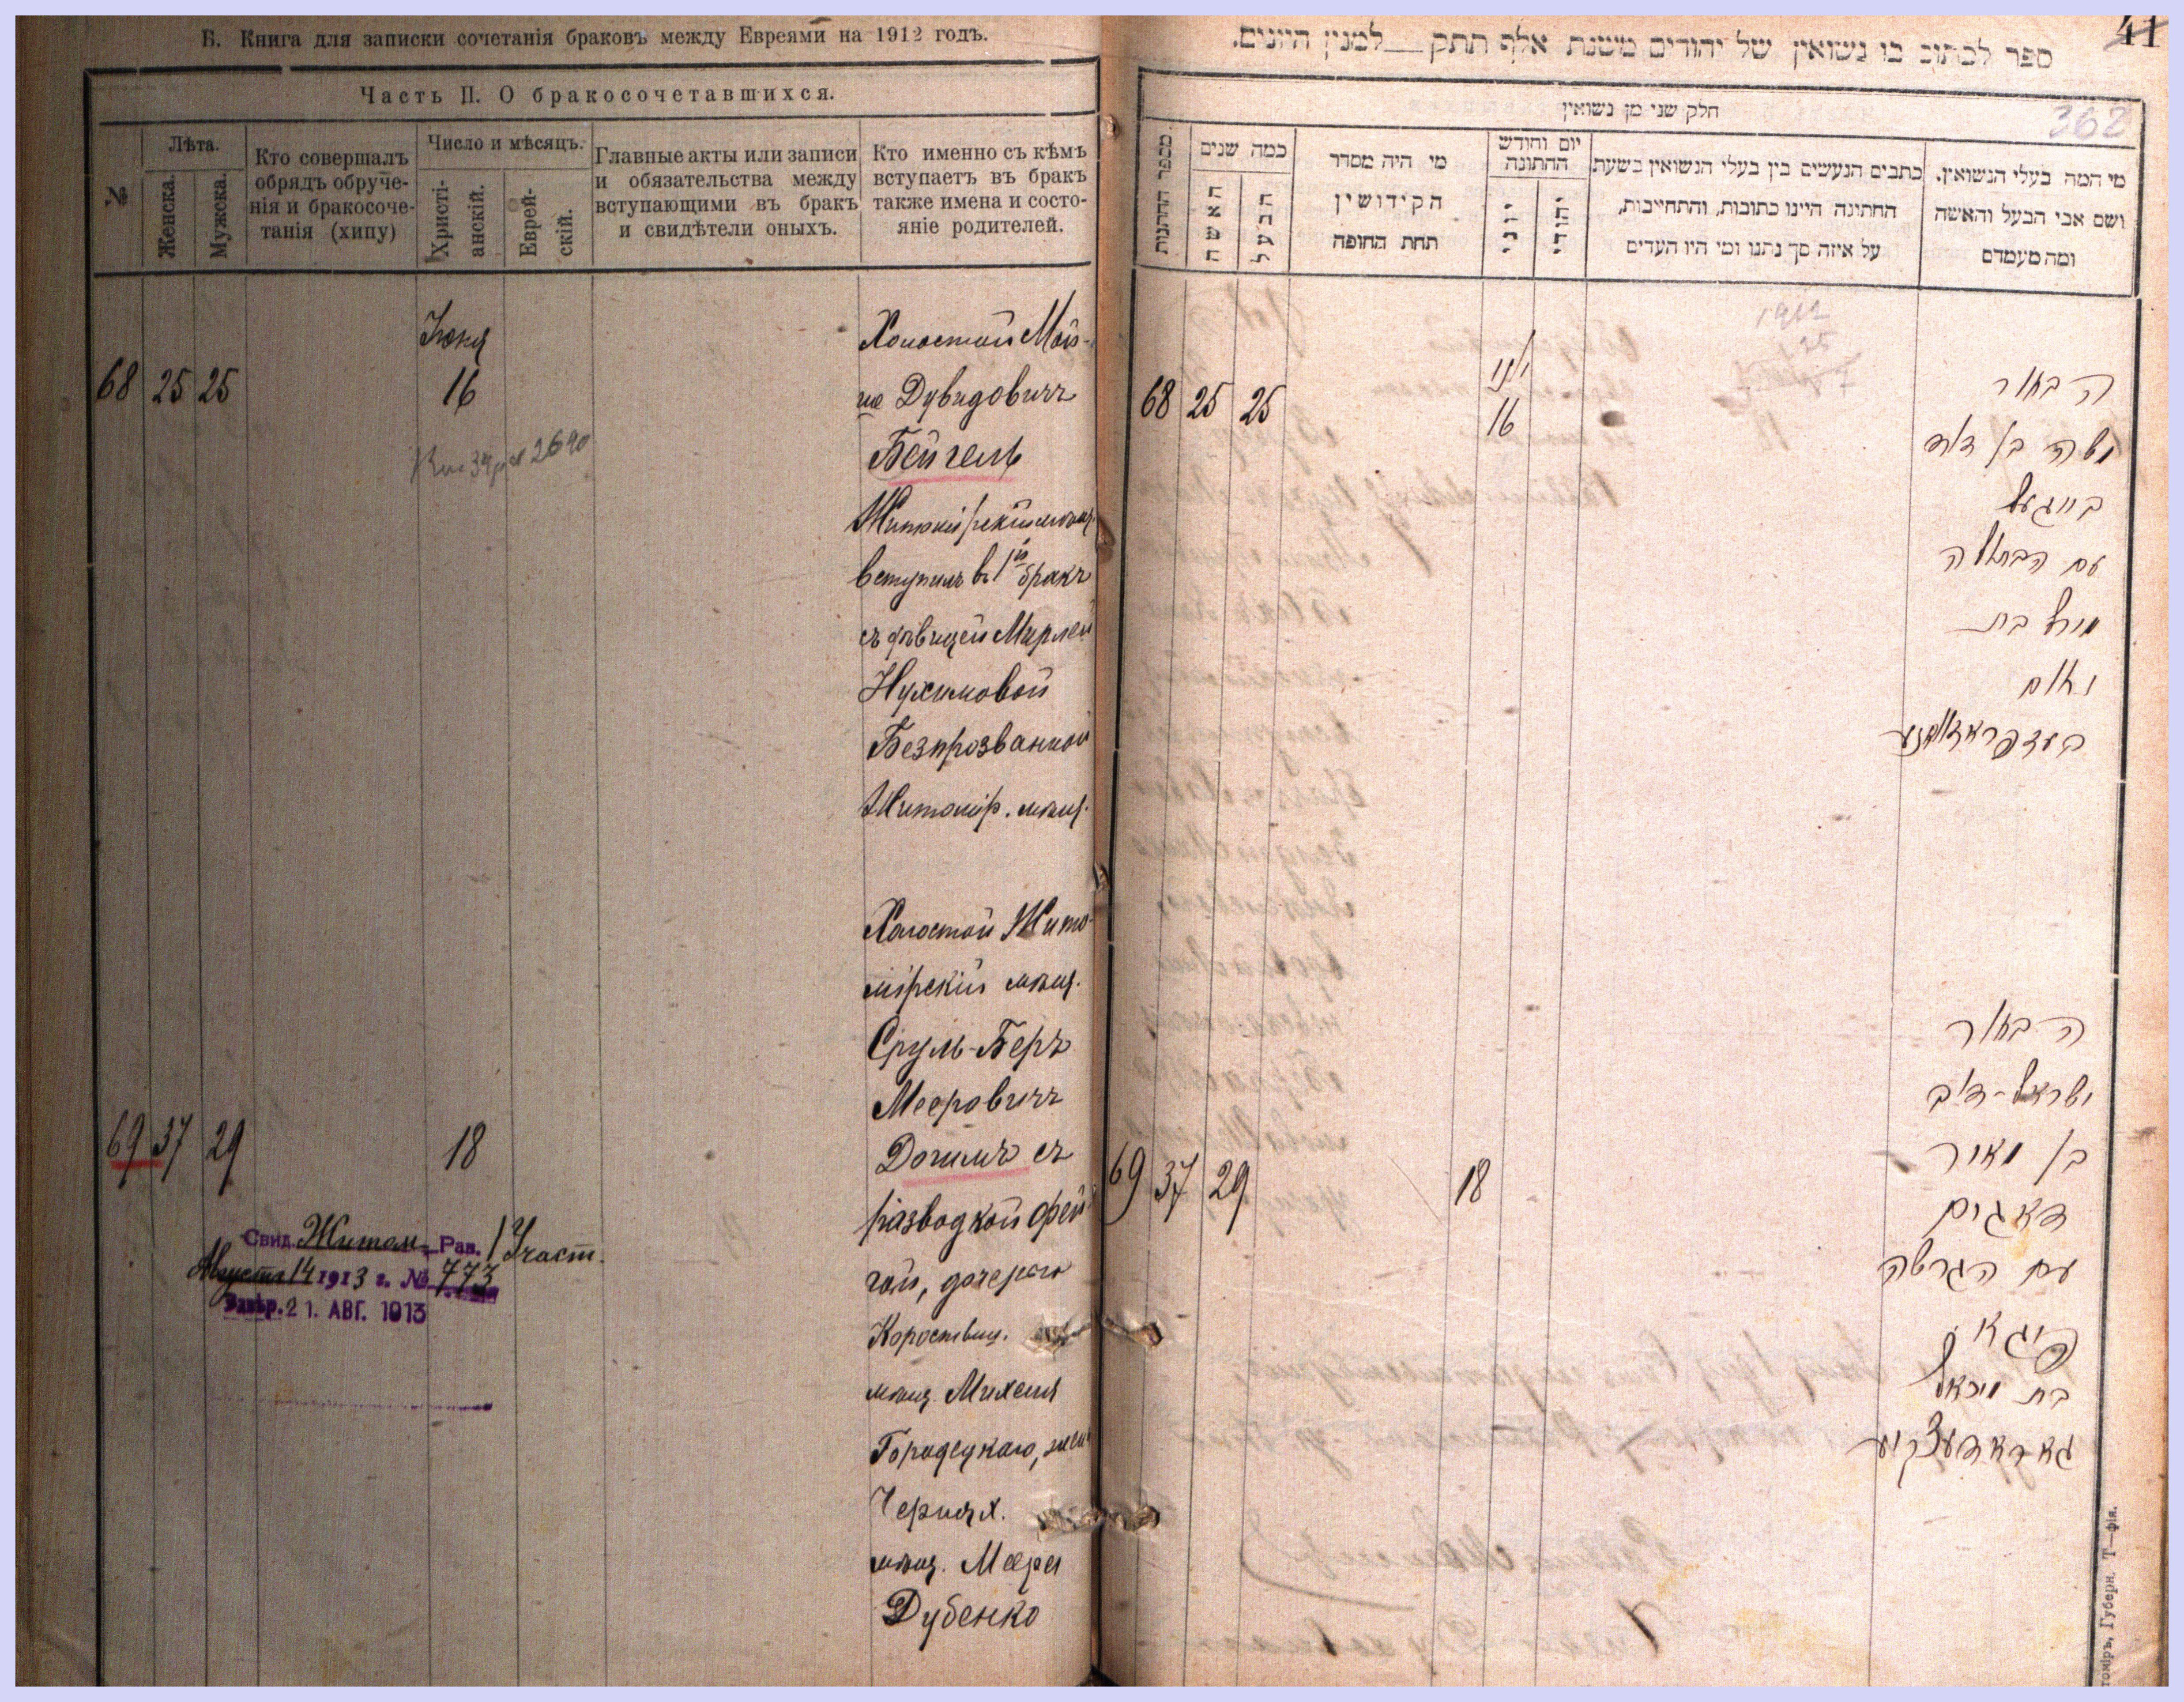 Б. Книга для записки сочетанія браковъ между Евреями на 1912 годъ.
Часть II. О бракосочетавшихся.
№
Лѣта.
Женска.
Мужска.
Кто совершалъ
обрядъ обруче-
нія и бракосоче-
танія (хипу)
Число и мѣсяцъ.
Христі-
анскій.
Еврей-
скій.
Главные акты или записи
и обязательства между
вступающими въ бракъ
и свидѣтели оныхъ.
Кто именно съ кѣмъ
вступаетъ въ бракъ
также имена и состо-
яніе родителей.
Іюня
68 25 25 16
Холостой Мой-
ше Дувидовичъ
Бейгель
вступилъ въ 1й бракъ
съ дѣвицей Мирлей
Нухимовой
Безпрозванной
Житомір. мѣщ.
Холостой Жито-
мірскій мѣщ.
Сруль-Беръ
Мееровичъ
69 37 29 18
Догимъ съ
разводкой Фей-
гой, дочерью
Коростыш.
мѣщ. Михеля
Городецкаго,
Черчях.
мѣщ. Меера
Дубенко
Свид. Житом. Рав. 1 Участ.
Августа 14 1913 г. № 773
21. АВГ. 1913
41
362
ספר לכתוב בו נשואין של יהודים משנת אלף תתק למנין היונים.
חלק שני מן נשואין
מספר החתונות
כמה שנים
האשה
הבעל
מי היה מסדר
הקידושין
תחת החופה
יום וחודש
החתונה
יוני
יהודי
כתבים הנעשים בין בעלי הנשואין בשעת
החתונה היינו כתובות, והתחייבות,
על איזה סך נתנו ומי היו העדים
מי המה בעלי הנשואין.
ושם אבי הבעל והאשה
ומה מעמדם
1912
68 25 25
יוני
16
הבחור
משה בן דוד
בייגעל
עם הבתולה
מירל בת
נחום
בעזפראזוואנע
הבחור
ישראל-דוב
בן מאיר
69 37 29 18
דאגים
עם הגרושה
פייגא
בת מיכאל
גאראדעצקיע
Губерн. Т—фія.